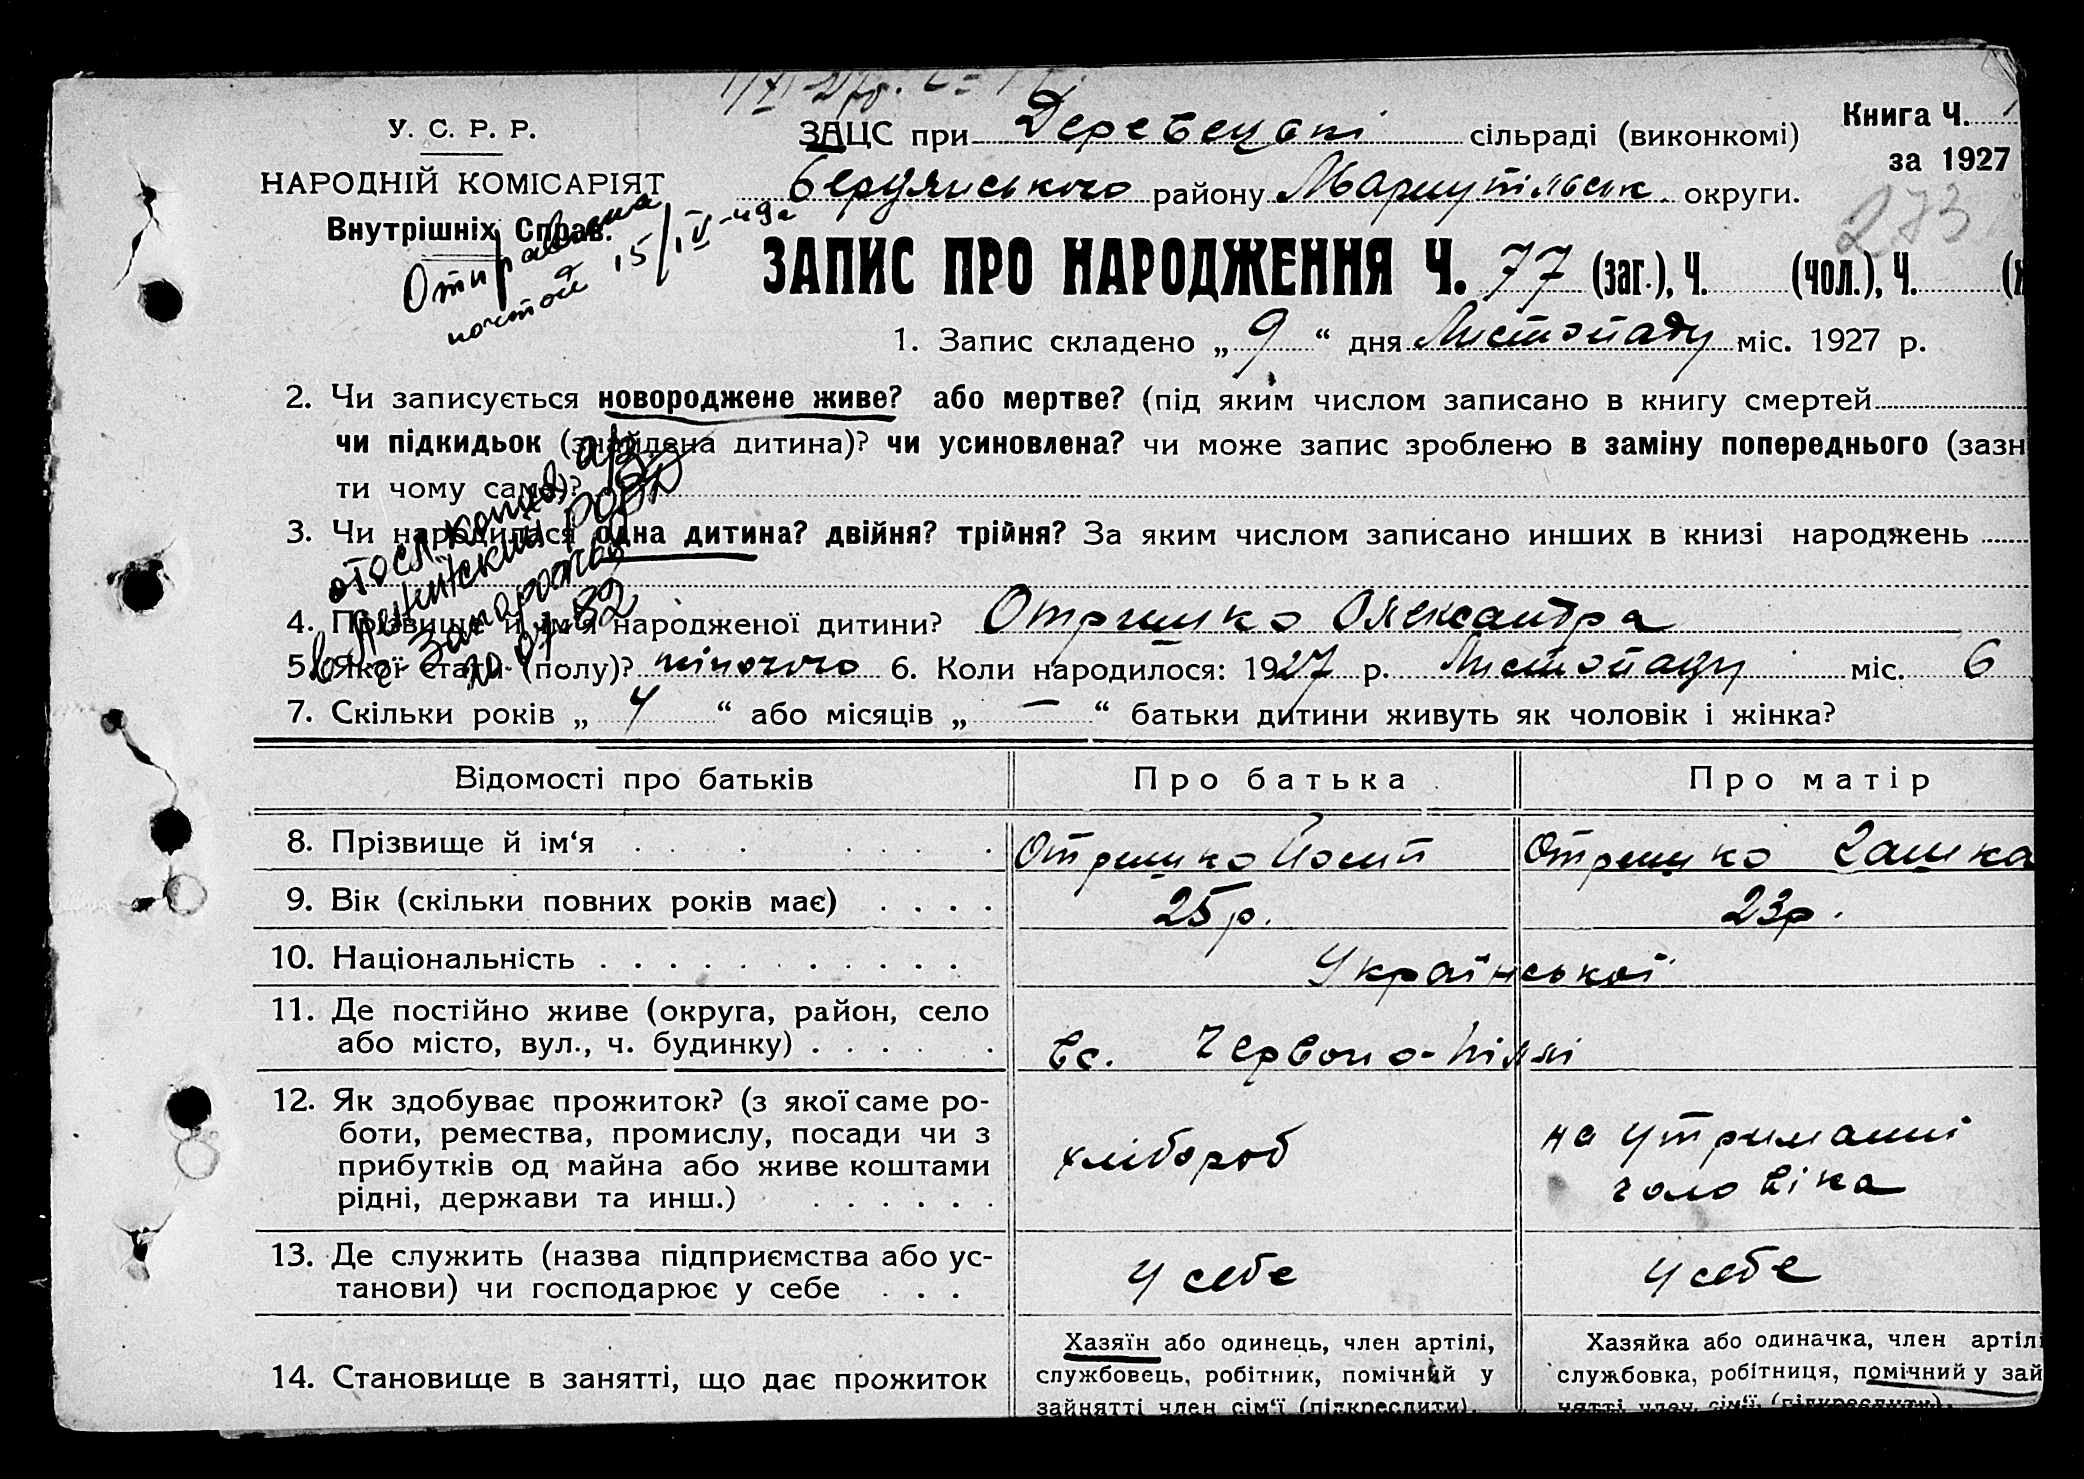 У. С. Р. Р.
НАРОДНІЙ КОМІСАРІЯТ
Внутрішніх Справ.
Отправлена
почтой 15/IV-49г
ЗАЦС при Деревецькі сільраді (виконкомі)
Бердянського району Маріупільськ. округи.
Книга Ч. 1
за 1927
273
ЗАПИС ПРО НАРОДЖЕННЯ Ч. 77 (заг.), Ч. (чол.), Ч.
1. Запис складено „ 9 “ дня Листопаду міс. 1927 р.
2. Чи записується новороджене живе? або мертве? (під яким числом записано в книгу смертей
чи підкидьок (знайдена дитина)? чи усиновлена? чи може запис зроблено в заміну попереднього (зазн
ти чому саме)?
3. Чи народилася одна дитина? двійня? трійня? За яким числом записано инших в книзі народжень
4. Прізвище й ім'я народженої дитини? Отришко Олександра
5. Якої статі (полу)? жіночого 6. Коли народилося: 1927 р. Листопаду міс. 6
7. Скільки років „ 4 “ або місяців „ — “ батьки дитини живуть як чоловік і жінка?
Відомості про батьків Про батька Про матір
8. Прізвище й ім‘я Отришко Йосип Отришко
9. Вік (скільки повних років має) 25 р. 23 р.
10. Національність Української
11. Де постійно живе (округа, район, село
або місто, вул., ч. будинку) вс. Червоно-Піллі
12. Як здобуває прожиток? (з якої саме ро-
боти, ремества, промислу, посади чи з
прибутків од майна або живе коштами
рідні, держави та инш.)
хлібороб
на утриманні
чоловіка
13. Де служить (назва підприємства або ус-
танови) чи господарює у себе
у себе у себе
14. Становище в занятті, що дає прожиток
Хазяїн або одинець, член артілі,
службовець, робітник, помічний у
зайнятті член сім‘ї (підкреслити).
Хазяйка або одиначка, член артіл
службовка, робітниця, помічний у зай
нятті член сім‘ї (підкреслити).